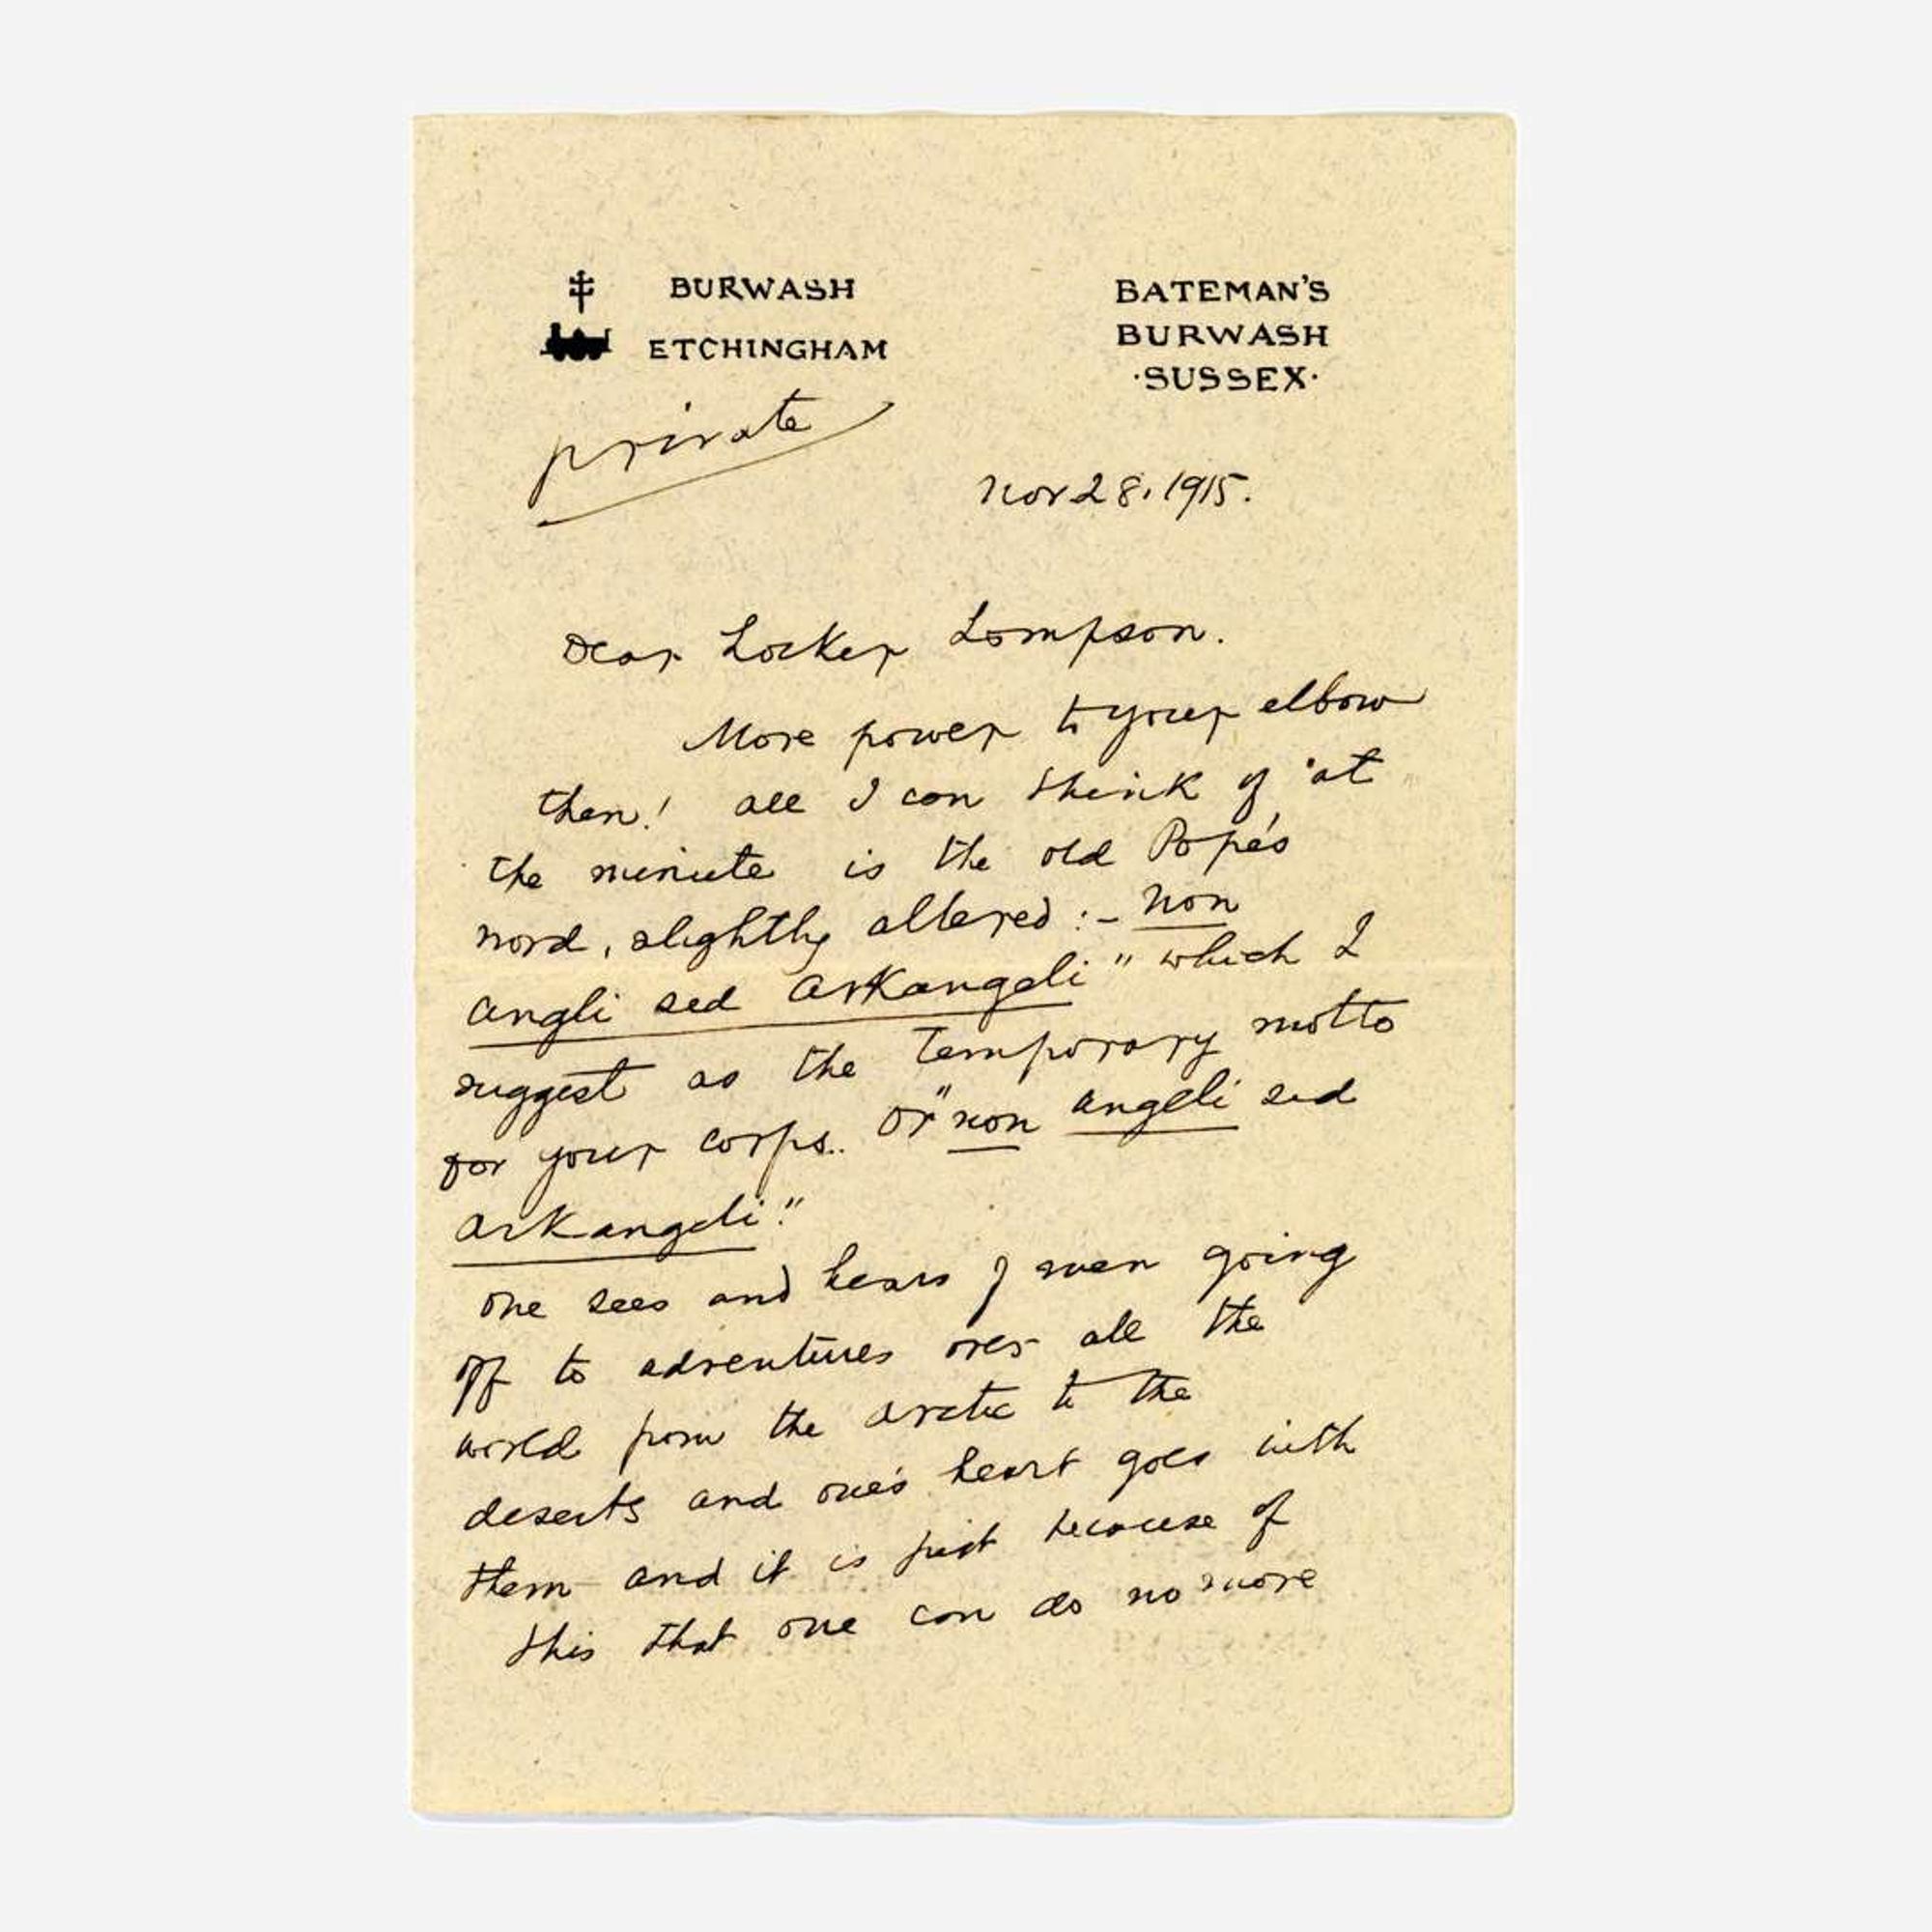 BURWASH
ETCHINGHAM
BATEMAN'S
BURWASH
·SUSSEX·
private
Nov 28. 1915.
Dear Locker Lampson.
More power to your elbow
then! All I can think of at
the minute is the old Pope's
word, slightly altered :- Non
Angli sed Arkangeli" which I
suggest as the temporary motto
for your corps.. Or "non angeli sed
Arkangeli."
One sees and hears of men going
off to adventures over all the
world from the Arctic to the
deserts and one's heart goes with
them and it is just because of
this that one can do no more